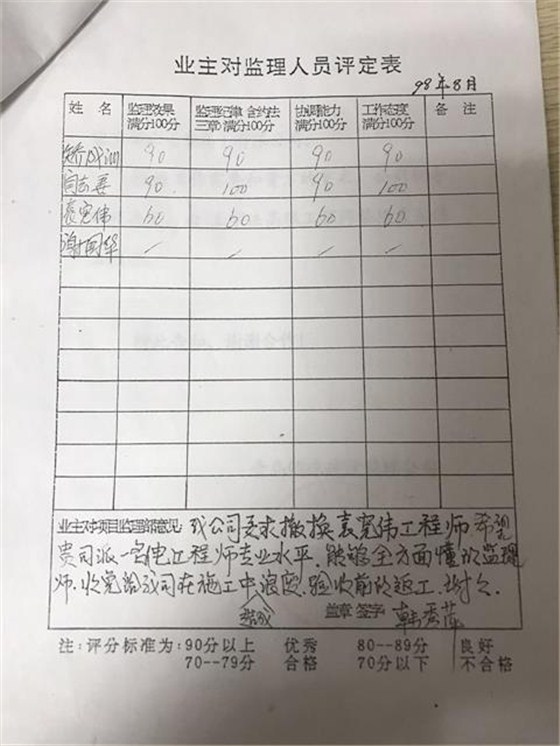 业主对监理人员评定表
98年8月
姓 名 监理效果 满分100分 监理纪律 合约法 三章 满分100分 协调能力 满分100分 工作态度 满分100分 备 注
90 90 90 90
90 100 90 100
袁宪伟 60 60 60 60
谢国华 / / / /
业主对项目监理部意见: 我公司要求撤换袁宪伟工程师.希望
贵司派一名电工程师专业水平.能够全方面懂的监理
师.以免给我司在施工中造成浪费.验收前的返工.谢谢.
盖章 签字: 韩秀萍
注:评分标准为:90分以上 优秀 80--89分 良好
70--79分 合格 70分以下 不合格